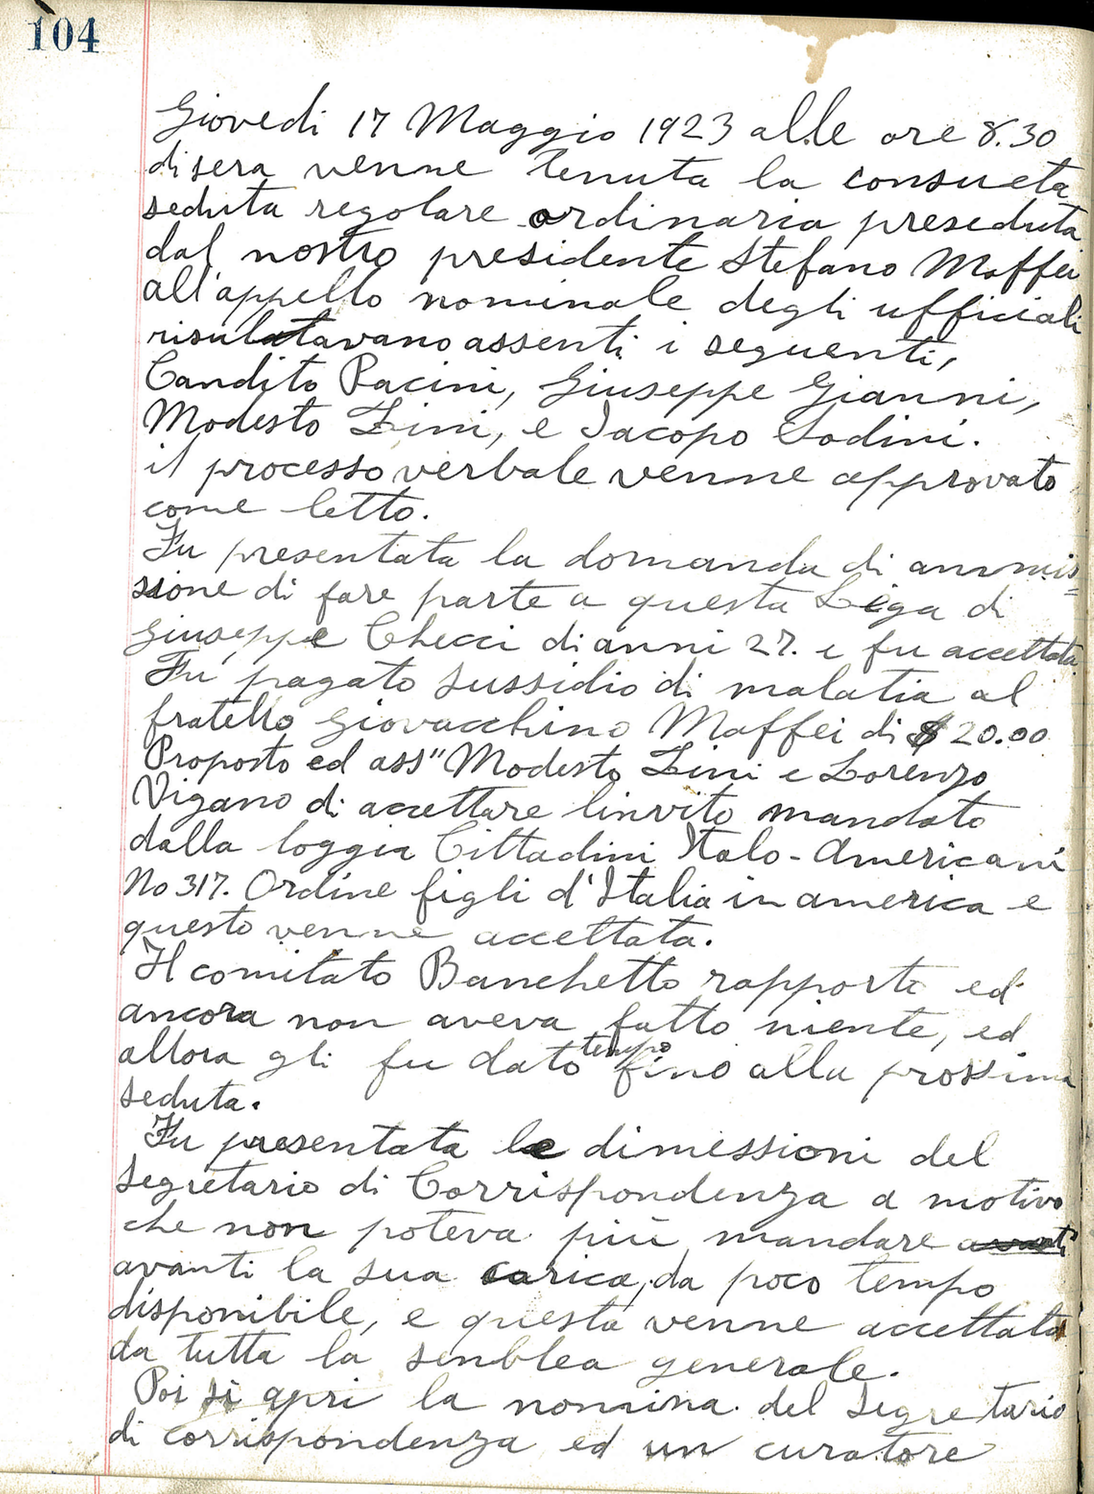 104
Giovedi 17 Maggio 1923 alle ore 8.30
di sera venne tenuta la consueta
seduta regolare ordinaria preseduta
dal nostro presidente Stefano Maffei
all'appello nominale degli ufficiali
risulatavano assenti i seguenti,
Candito Pacini, Giuseppe Gianni,
Modesto Lini, e Jacopo Lodini.
il processo verbale venne approvato
come letto.
Fu presentata la domanda di ammis=
sione di fare parte a questa Lega di
Giuseppe Checci di anni 27. e fu accettata
Fu pagato sussidio di malatia al
fratello Giovacchino Maffei di $ 20.00
Proposto ed ass" Modesto Lini e Lorenzo
Vigano di accettare linvito mandato
dalla loggia Cittadini Italo-Americani
No 317. Ordine figli d'Italia in america e
questo venne accettata.
Il comitato Banchetto rapporto ed
ancora non aveva fatto niente, ed
allora gli fu dato tempo fino alla prossima
seduta.
Fu presentata le dimessioni del
segretario di Corrispondenza a motivo
che non poteva più mandare avanti
avanti la sua carica, da poco tempo
disponibile, e questa venne accettata
da tutta la senblea generale.
Poi si apri la nomina del Segretario
di corrispondenza ed un curatore